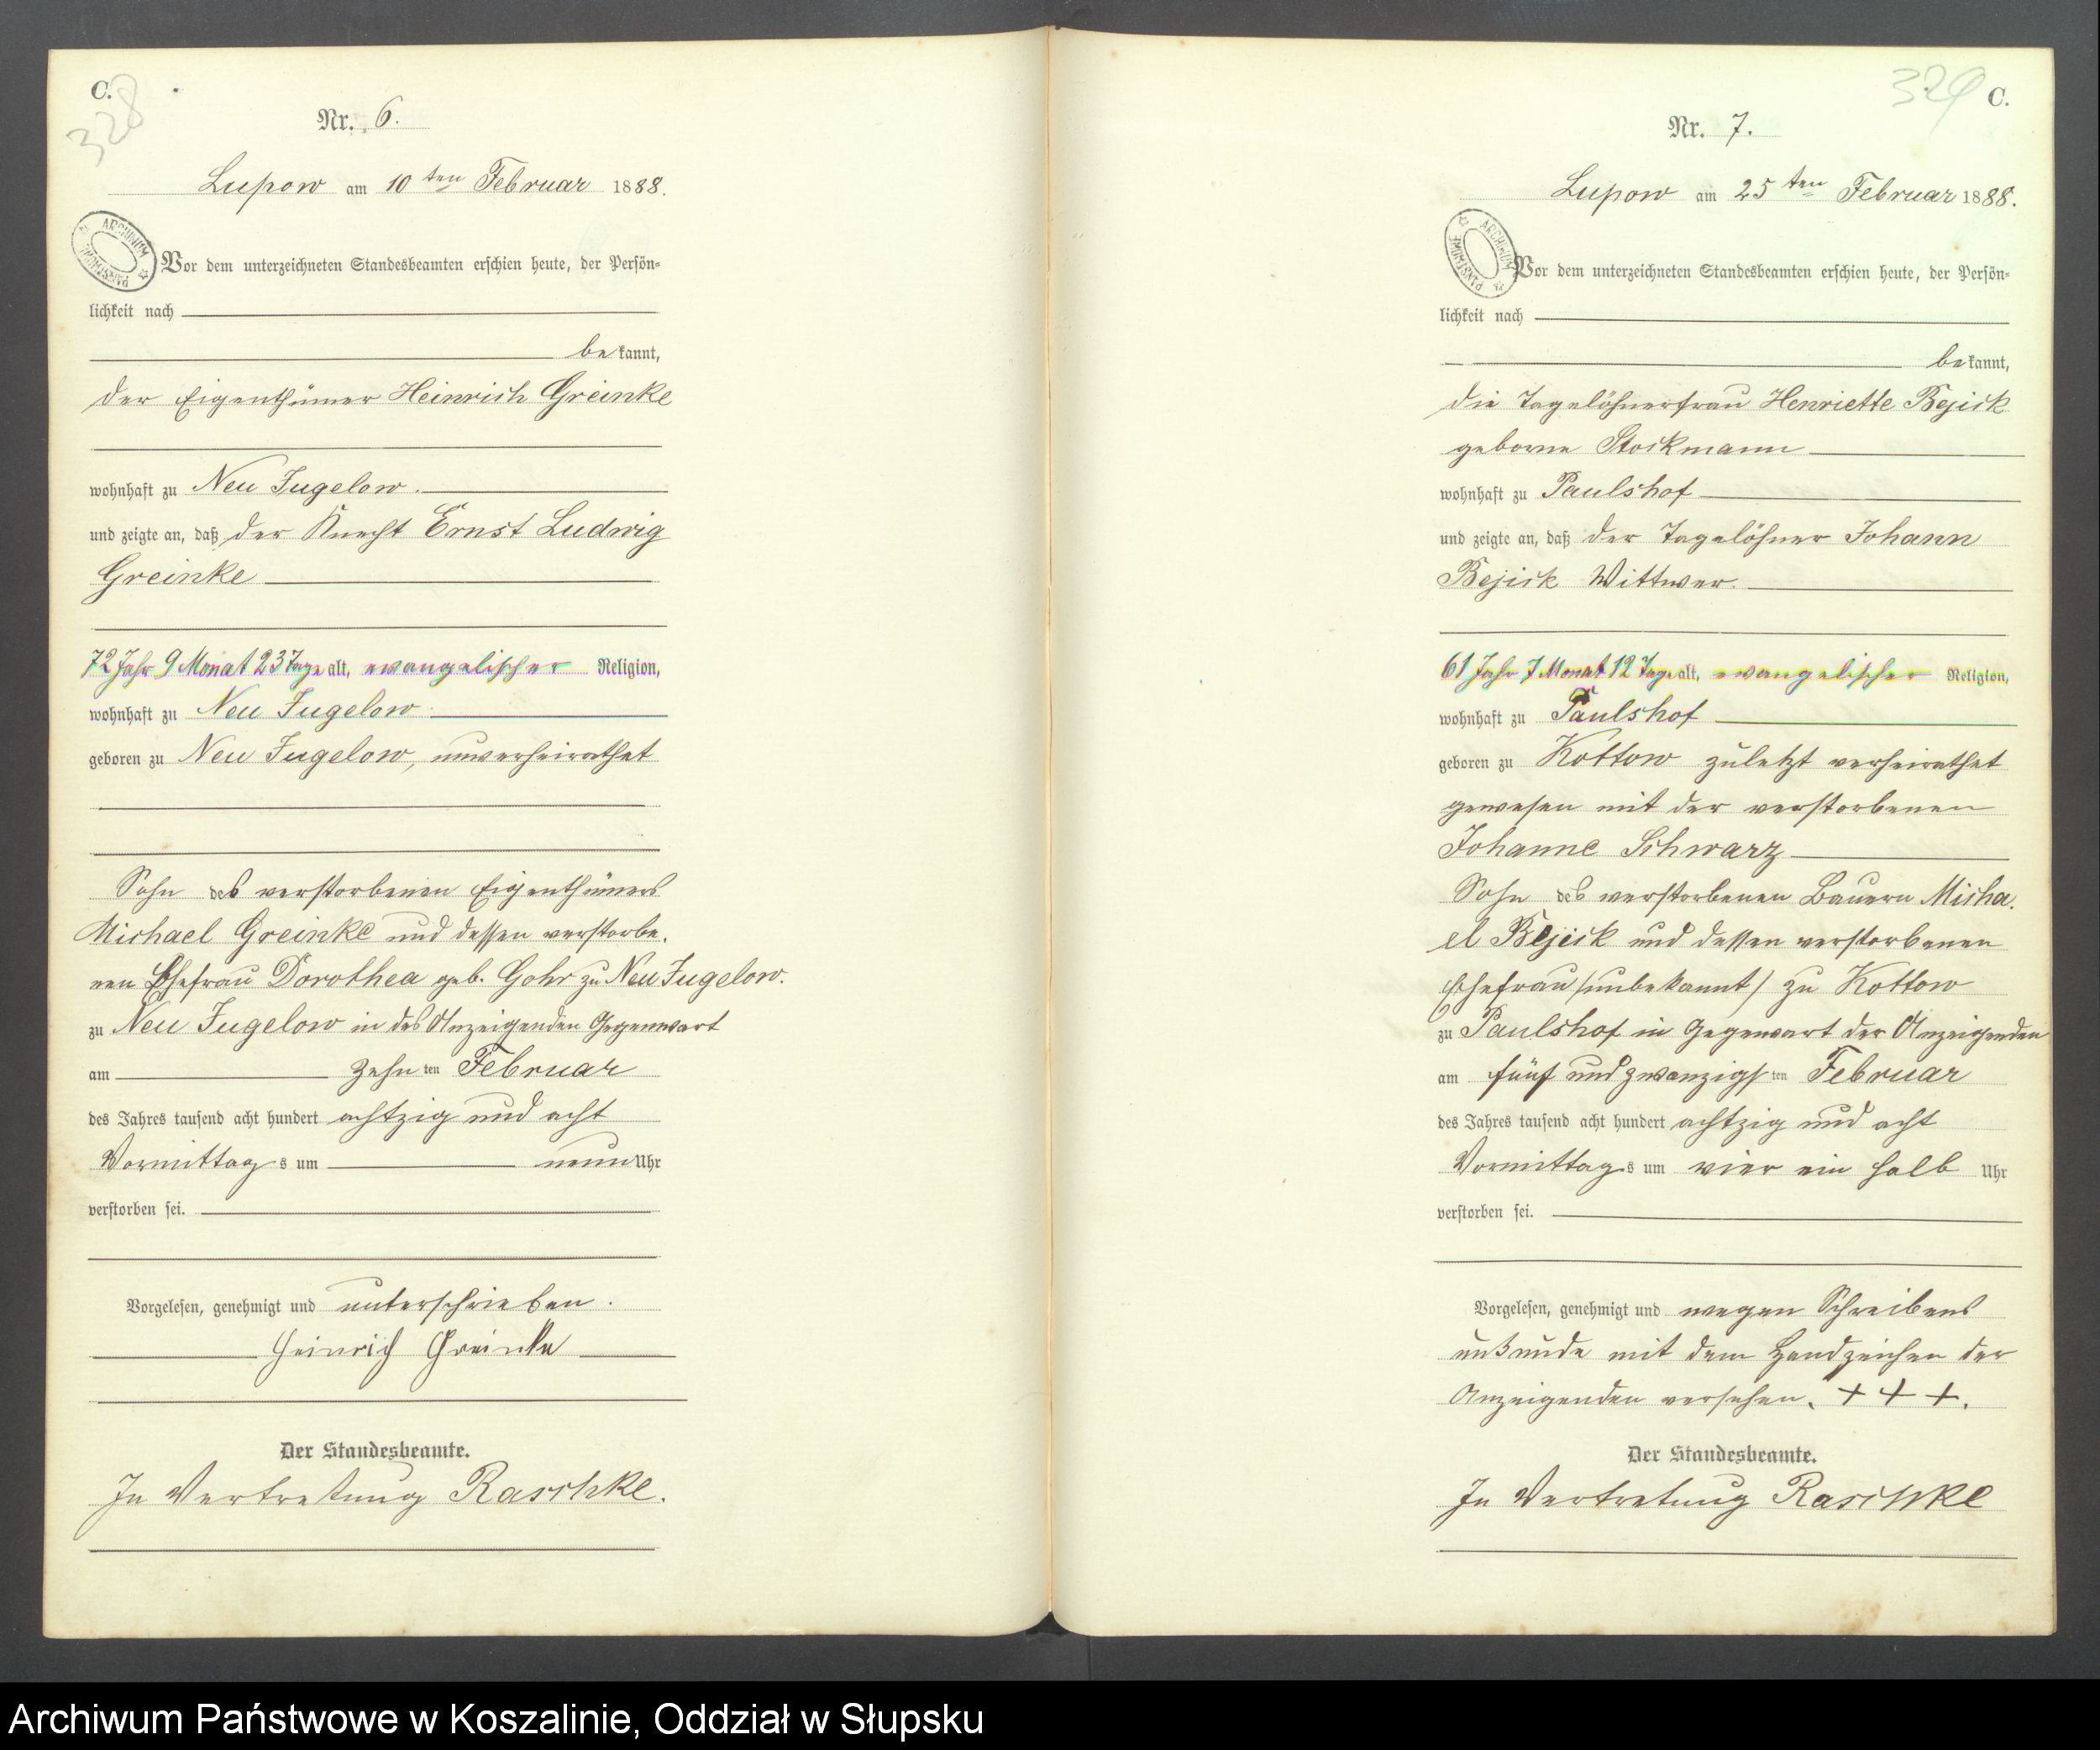 C.
328
Nr. 6.
Lupow am 10ten Februar 1888.
ARCHIWUM PAŃSTWOWE
Vor dem unterzeichneten Standesbeamten erschien heute, der Persön-
lichkeit nach
bekannt,
der Eigenthümer Heinrich Greinke
wohnhaft zu Neu Jugelow.
und zeigte an, daß der Knecht Ernst Ludwig
Greinke
72 Jahr 9 Monat 23 Tage alt, evangelischer Religion,
wohnhaft zu Neu Jugelow
geboren zu Neu Jugelow, unverheirathet
Sohn des verstorbenen Eigenthümers
Michael Greinke und dessen verstorbe-
nen Ehefrau Dorothea geb. Gohr zu Neu Jugelow.
zu Neu Jugelow in des Anzeigenden Gegenwart
am zehn ten Februar
des Jahres tausend acht hundert achtzig und acht
Vormittags um neun Uhr
verstorben sei.
Vorgelesen, genehmigt und unterschrieben.
Heinrich Greinke
Der Standesbeamte.
In Vertretung Raschke.
329
C.
Nr. 7.
Lupow am 25ten Februar 1888.
ARCHIWUM PAŃSTWOWE
Vor dem unterzeichneten Standesbeamten erschien heute, der Persön-
lichkeit nach
bekannt,
die Tagelöhnerfrau Henriette Bejick
geborne Stockmann
wohnhaft zu Paulshof
und zeigte an, daß der Tagelöhner Johann
Bejick Wittwer.
61 Jahr 7 Monat 12 Tage alt, evangelischer Religion,
wohnhaft zu Paulshof
geboren zu Kottow zuletzt verheirathet
gewesen mit der verstorbenen
Johanne Schwarz
Sohn des verstorbenen Bauern Micha-
el Bejick und dessen verstorbenen
Ehefrau /unbekannt/ zu Kottow
zu Paulshof in Gegenwart der Anzeigenden
am fünf und zwanzigsten Februar
des Jahres tausend acht hundert achtzig und acht
Vormittags um vier ein halb Uhr
verstorben sei.
Vorgelesen, genehmigt und wegen Schreibens
unkunde mit dem Handzeichen der
Anzeigenden versehen. + + +.
Der Standesbeamte.
In Vertretung Raschke
Archiwum Państwowe w Koszalinie, Oddział w Słupsku